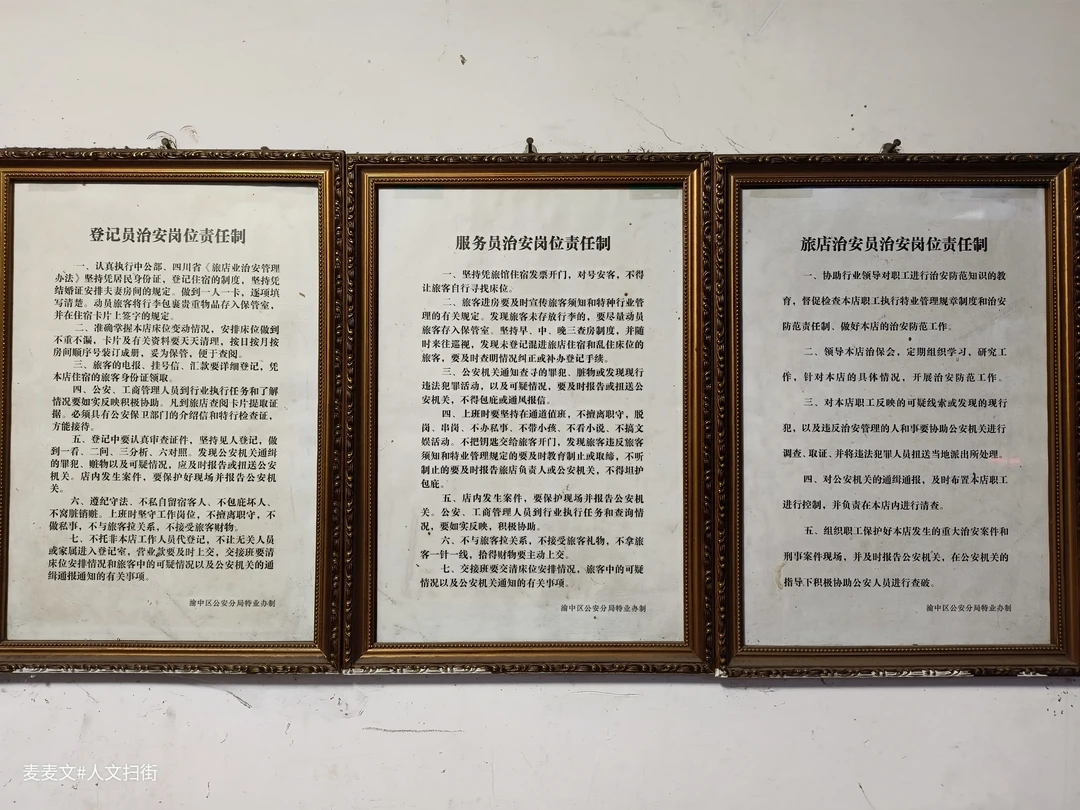 登记员治安岗位责任制
一、认真执行中公部、四川省《旅店业治安管理
办法》坚持凭居民身份证，登记住宿的制度，坚持凭
结婚证安排夫妻房间的规定。做到一人一卡，逐项填
写清楚。动员旅客将行李包裹贵重物品存入保管室，
并在住宿卡片上签字的规定。
二、准确掌握本店床位变动情况，安排床位做到
不重不漏，卡片及有关资料要天天清理，按日按月按
房间顺序号装订成册，妥为保管，便于查阅。
三、旅客的电报、挂号信、汇款要详细登记，凭
本店住宿的旅客身份证领取。
四、公安、工商管理人员到行业执行任务和了解
情况要如实反映积极协助。凡到旅店查阅卡片提取证
据。必须具有公安保卫部门的介绍信和特行检查证，
方能接待。
五、登记中要认真审查证件，坚持见人登记，做
到一看、二问、三分析、六对照。发现公安机关通缉
的罪犯、赃物以及可疑情况，应及时报告或扭送公安
机关。店内发生案件，要保护好现场并报告公安机
关。
六、遵纪守法、不私自留宿客人、不包庇坏人、
不窝脏销赃。上班时坚守工作岗位，不擅离职守，不
做私事，不与旅客拉关系，不接受旅客财物。
七、不托非本店工作人员代登记，不让无关人员
或家属进入登记室，营业款要及时上交，交接班要清
床位安排情况和旅客中的可疑情况以及公安机关的通
缉通报通知的有关事项。
渝中区公安分局特业办制
服务员治安岗位责任制
一、坚持凭旅馆住宿发票开门，对号安客，不得
让旅客自行寻找床位。
二、旅客进房要及时宣传旅客须知和特种行业管
理的有关规定。发现旅客未存放行李的，要尽量动员
旅客存入保管室。坚持早、中、晚三查房制度，并随
时来往巡视，发现未登记混进旅店住宿和乱住床位的
旅客，要及时查明情况纠正或补办登记手续。
三、公安机关通知查寻的罪犯、脏物或发现现行
违法犯罪活动，以及可疑情况，要及时报告或扭送公
安机关，不得包庇或通风报信。
四、上班时要坚持在通道值班，不擅离职守，脱
岗、串岗、不办私事、不带小孩、不看小说、不搞文
娱活动。不把钥匙交给旅客开门，发现旅客违反旅客
须知和特业管理规定的要及时教育制止或取缔，不听
制止的要及时报告旅店负责人或公安机关，不得坦护
包庇。
五、店内发生案件，要保护现场并报告公安机
关。公安、工商管理人员到行业执行任务和查询情
况，要如实反映，积极协助。
六、不与旅客拉关系，不接受旅客礼物，不拿旅
客一针一线，拾得财物要主动上交。
七、交接班要交清床位安排情况，旅客中的可疑
情况以及公安机关通知的有关事项。
渝中区公安分局特业办制
旅店治安员治安岗位责任制
一、协助行业领导对职工进行治安防范知识的教
育，督促检查本店职工执行特业管理规章制度和治安
防范责任制、做好本店的治安防范工作。
二、领导本店治保会，定期组织学习，研究工
作，针对本店的具体情况，开展治安防范工作。
三、对本店职工反映的可疑线索或发现的现行
犯，以及违反治安管理的人和事要协助公安机关进行
调查、取证、并将违法犯罪人员扭送当地派出所处理。
四、对公安机关的通缉通报，及时布置本店职工
进行控制，并负责在本店内进行清查。
五、组织职工保护好本店发生的重大治安案件和
刑事案件现场，并及时报告公安机关，在公安机关的
指导下积极协助公安人员进行查破。
渝中区公安分局特业办制
麦麦文#人文扫街